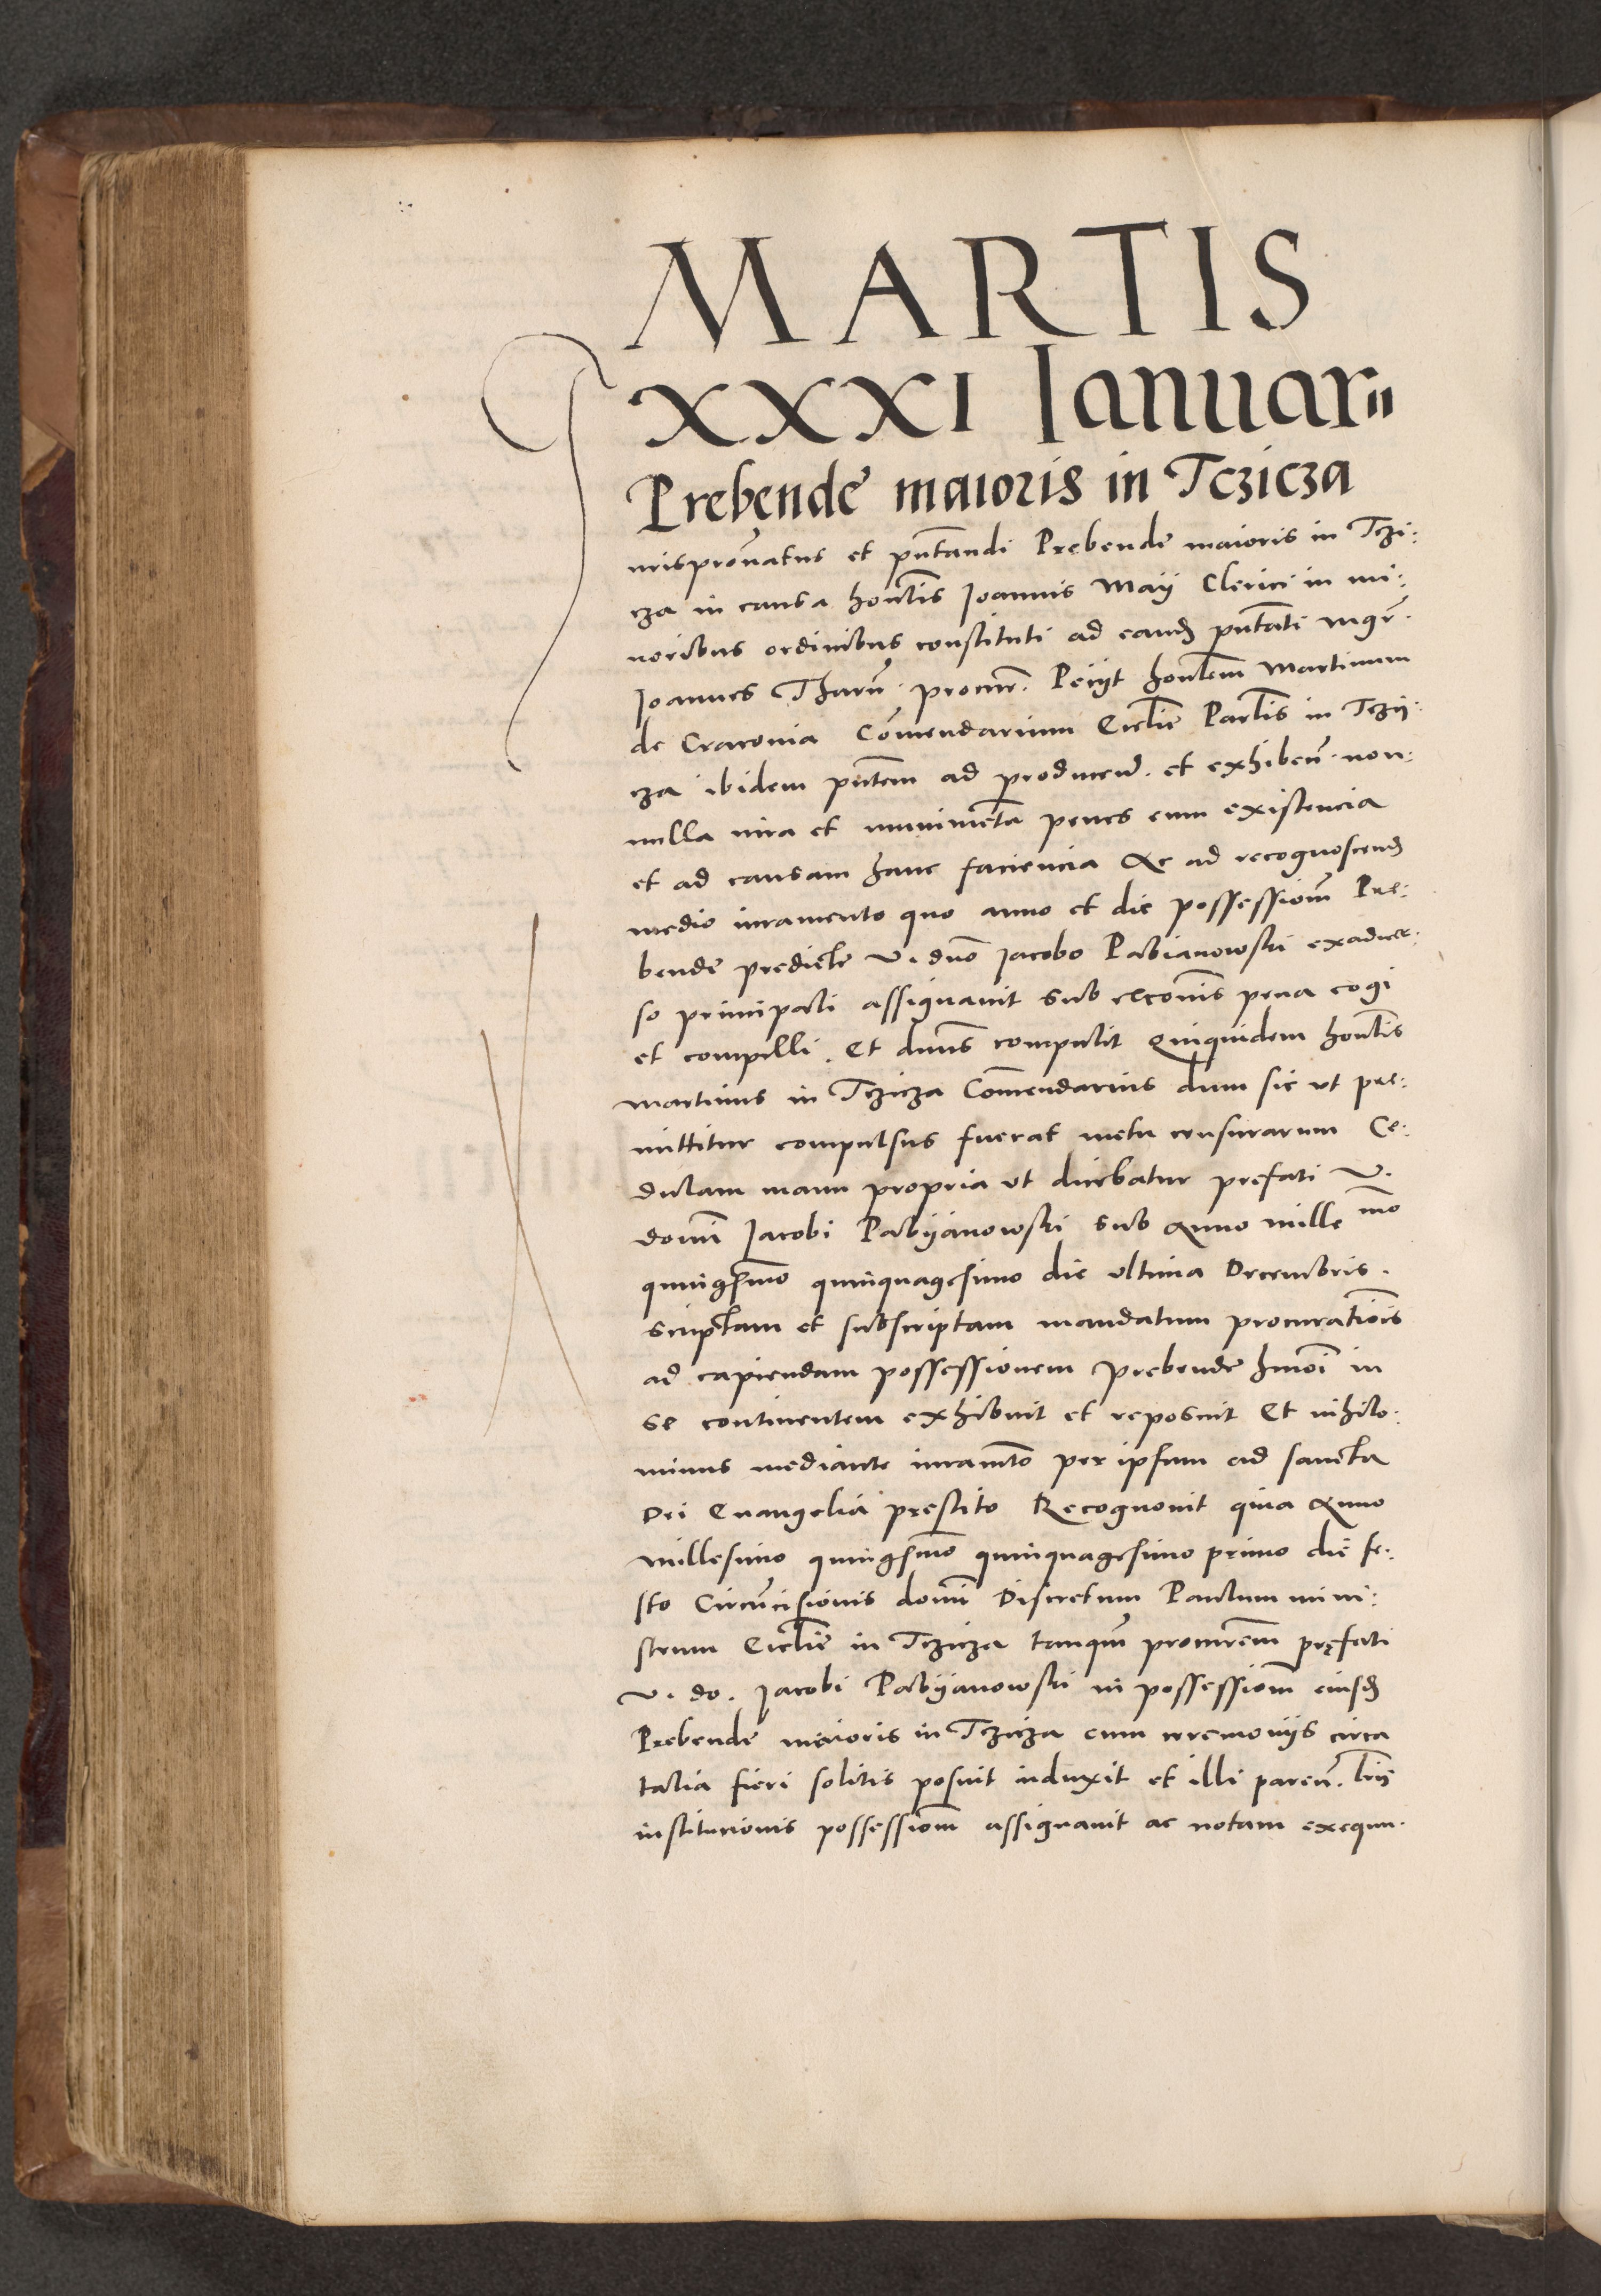 MARTIS
XXXI Ianuarii
Prebende maioris in Tczicza
Iurisprōnatus et pn̄tandi Prebende maioris in Tczi:
cza in causa hon̄lis Ioannis May Clerici in mi:
noribus ordinibus constituti ad eand pn̄tati mgr̄.
Ioannes procur̄. Peciit hon̄lem Martinum
de Cracovia Cōmendarium Ecclīe Parlīs in Tczy:
cza ibidem pn̄tem ad producend. et exhibeñ. non:
nulla iura et munimēta penes eum existencia
et ad causam hanc faciencia &c ad recognoscend
medio iuramento quo anno et die possessionē Pre:
bende predicte V. dno Iacobo Pabianowski exadver:
so principali assignavit sub excōnis pena cogi
et compelli. Et dn̄us compulit Quiquidem hon̄lis
Martinus in Tczicza Cōmendarius dum sic ut pre:
mittitur compulsus fuerat metu censurarum Ce:
dulam manu propria ut dicebatur prefati V.
domī Iacobi Pabyanowski sub Anno mille mo
quingēmo quinquagesimo die ultima Decembris.
scriptam et subscriptam mandatum procurationis
ad capiendam possessionem prebende hmōi in
se continentem exhibuit et reposuit Et nihilo:
minus mediante iuramto per ipsum ad sancta
Dei Evangelia prestito Recognovit quia Anno
millesimo quingēmo quinquagesimo primo die fe:
sto Circūcisionis domī Discretum Paulum mini:
strum Ecclīe in Tczicza tanquam procurēm prefati
V. do. Iacobi Pabyanowski in possessionē eiusd
Prebende maioris in Tczicza cum ceremoniis circa
talia fieri solitis posuit induxit et illi pareñ. lrīs
institucionis possessionē assignavit ac notam exequu.